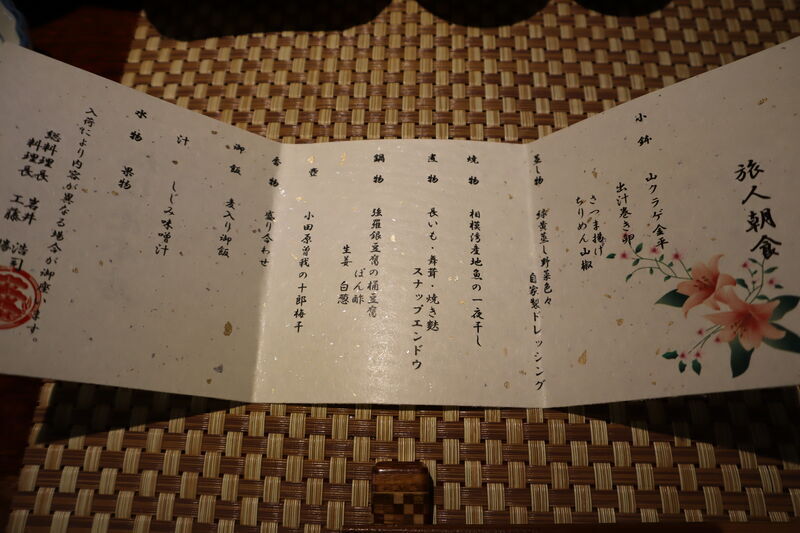 旅人朝食
小鉢
山クラゲ金平
出汁巻き卵
さつま揚げ
ちりめん山椒
蒸し物
緑黄蒸し野菜色々
自家製ドレッシング
焼物
相模湾産地魚の一夜干し
煮物
長いも・舞茸・焼き麩
スナップエンドウ
鍋物
強羅銀豆腐の桶豆腐
ぽん酢
生姜 白葱
壺
小田原曽我の十郎梅干
香物
盛り合わせ
御飯
麦入り御飯
汁
しじみ味噌汁
水物
果物
入荷により内容が異なる場合が御座います。
総料理長 岩井
料理長 工藤